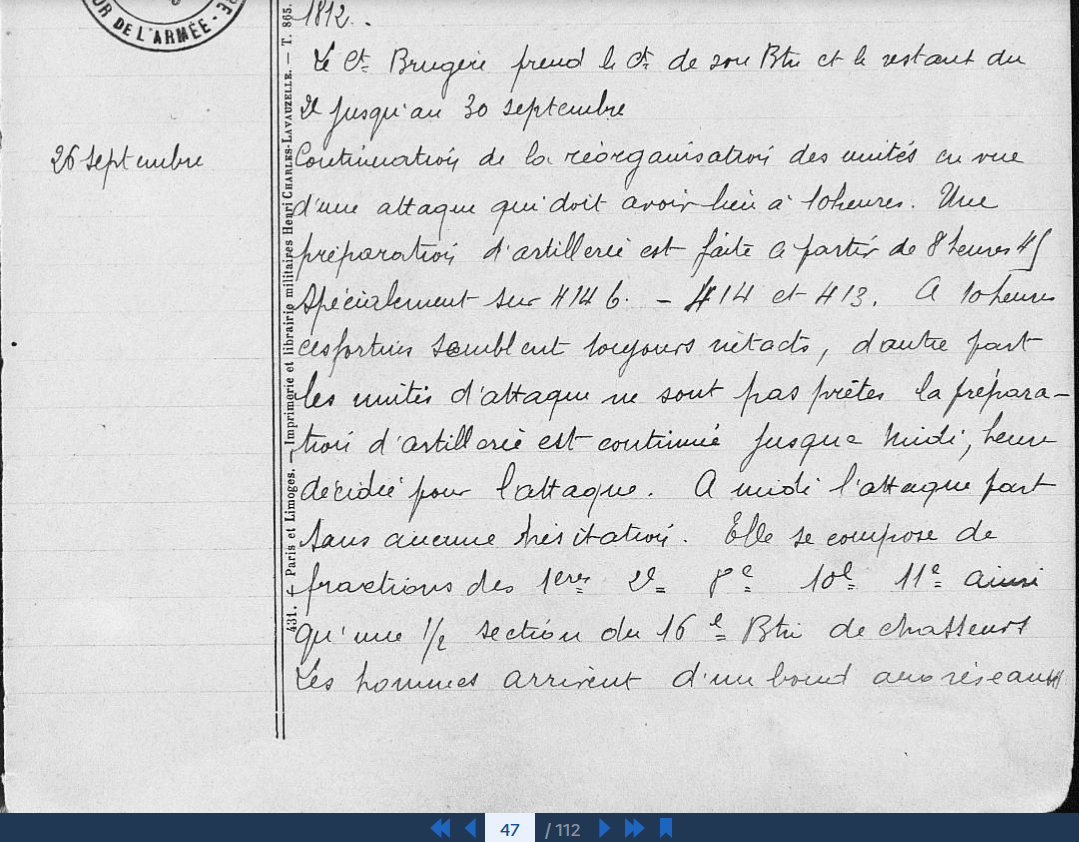 UR DE L'ARMÉE
1812.
Le Ct Brugère prend le Ct de son Btn et le restant du
2e jusqu'au 30 septembre
26 Septembre
Continuation de la réorganisation des unités en vue
d'une attaque qui doit avoir lieu à 10 heures. Une
préparation d'artillerie est faite à partir de 8 heures 45
Spécialement sur 414 b. - 414 et 413. A 10 heures
ces fortins semblent toujours intacts, d'autre part
les unités d'attaque ne sont pas prêtes la prépara-
tion d'artillerie est continuée jusque Midi, heure
décidée pour l'attaque. A midi l'attaque part
Sans aucune hésitation. Elle se compose de
fractions des 1eres 2e 8e 10e 11e ainsi
qu'une 1/2 section du 16e Btn de chasseurs
Les hommes arrivent d'un bond aux réseaux
431. - Paris et Limoges. - Imprimerie et librairie militaires Henri CHARLES-LAVAUZELLE. - T. 865.
47 / 112